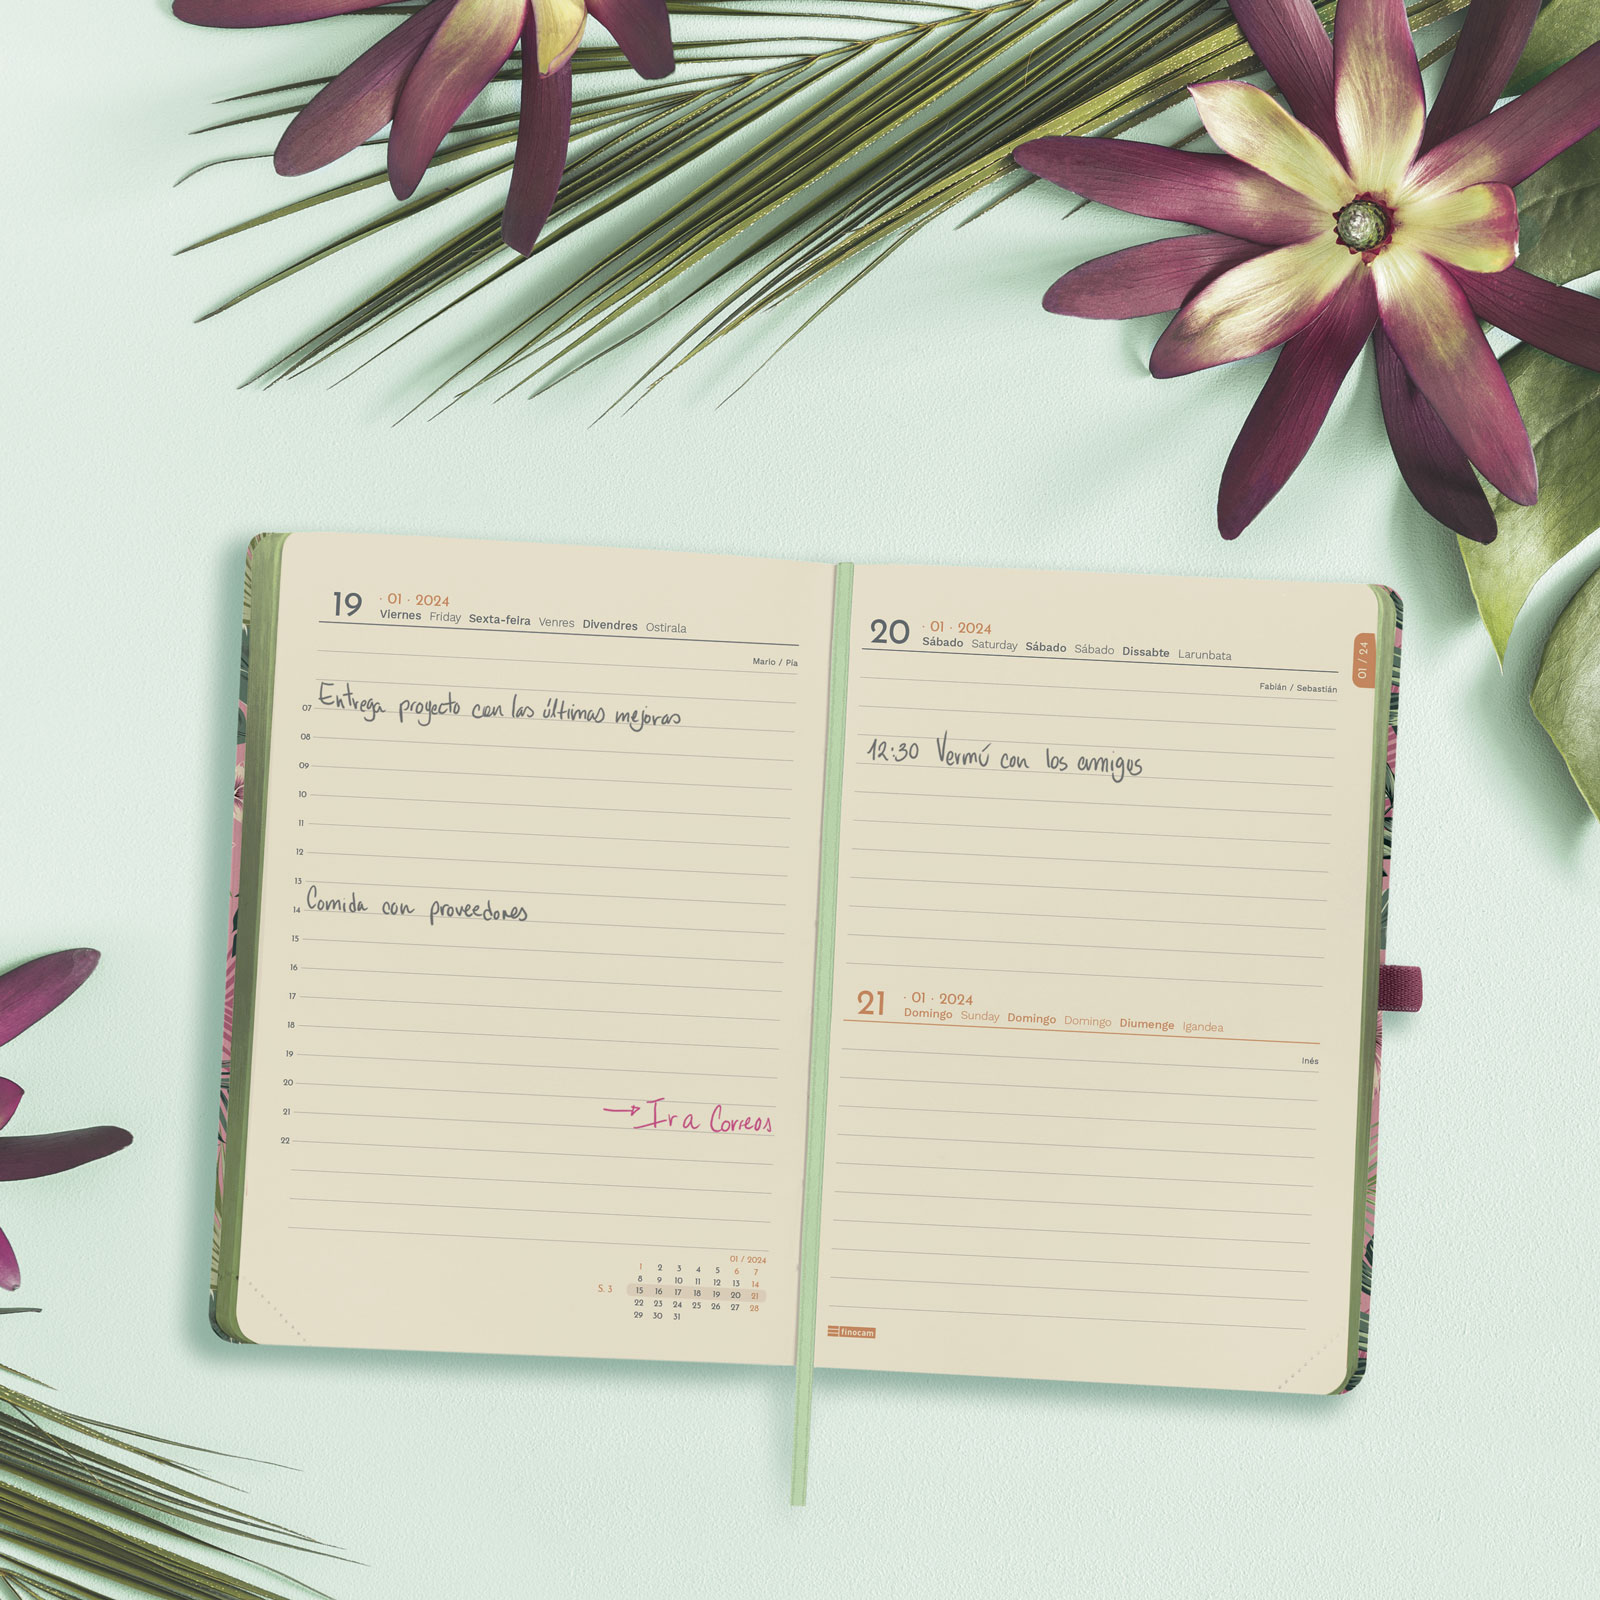 19 · 01 · 2024
Viernes Friday Sexta-feira Venres Divendres Ostirala
Mario / Pía
07 Entrega proyecto con las últimas mejoras
08
09
10
11
12
13
14 Comida con proveedores
15
16
17
18
19
20
21 → Ir a Correos
22
01 / 2024
1 2 3 4 5 6 7
8 9 10 11 12 13 14
S. 3 15 16 17 18 19 20 21
22 23 24 25 26 27 28
29 30 31
20 · 01 · 2024
Sábado Saturday Sábado Sábado Dissabte Larunbata
01 / 24
Fabián / Sebastián
12:30 Vermú con los amigos
21 · 01 · 2024
Domingo Sunday Domingo Domingo Diumenge Igandea
Inés
finocam